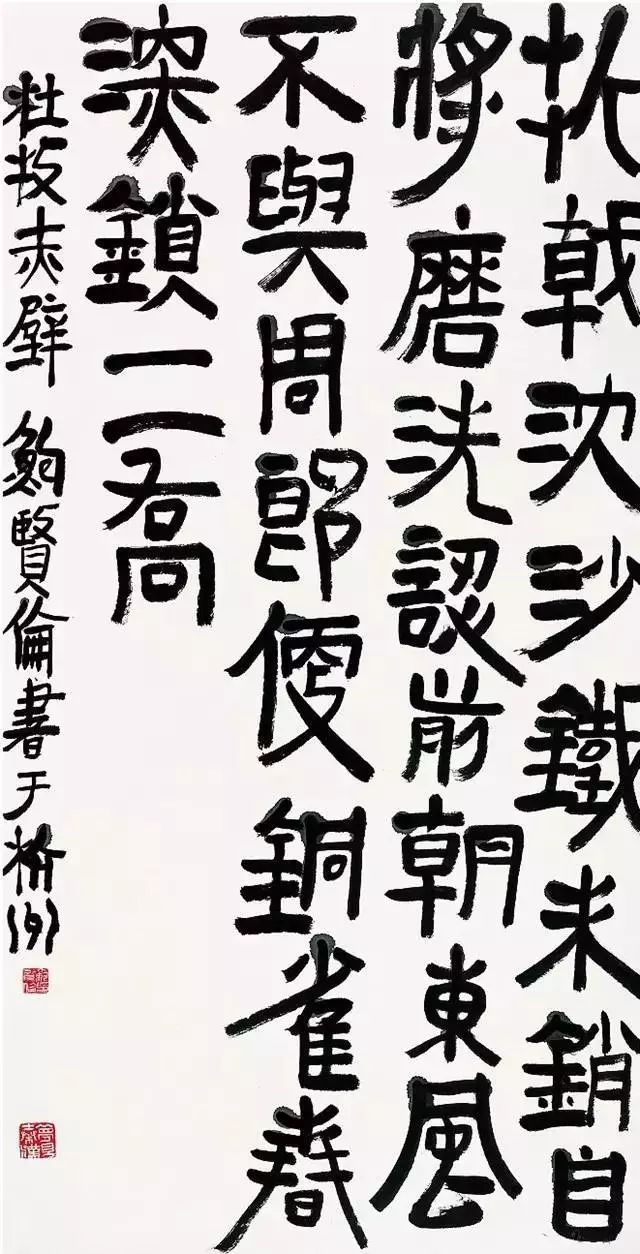 折戟沈沙鐵未銷自
將磨洗認前朝東風
不與周郎便銅雀春
深鎖二喬
杜牧赤壁 鮑賢倫書于州